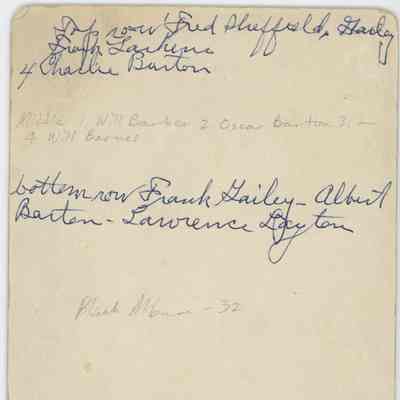 Top row Fred Sheffield, Gailey
Frank Larkins
4 Charlie Burton
Middle 1 Will Barber 2 Oscar Barton 3. —
4 Will Barnes
bottom row Frank Gailey - Albert
Barton - Lawrence Layton
Black - 32